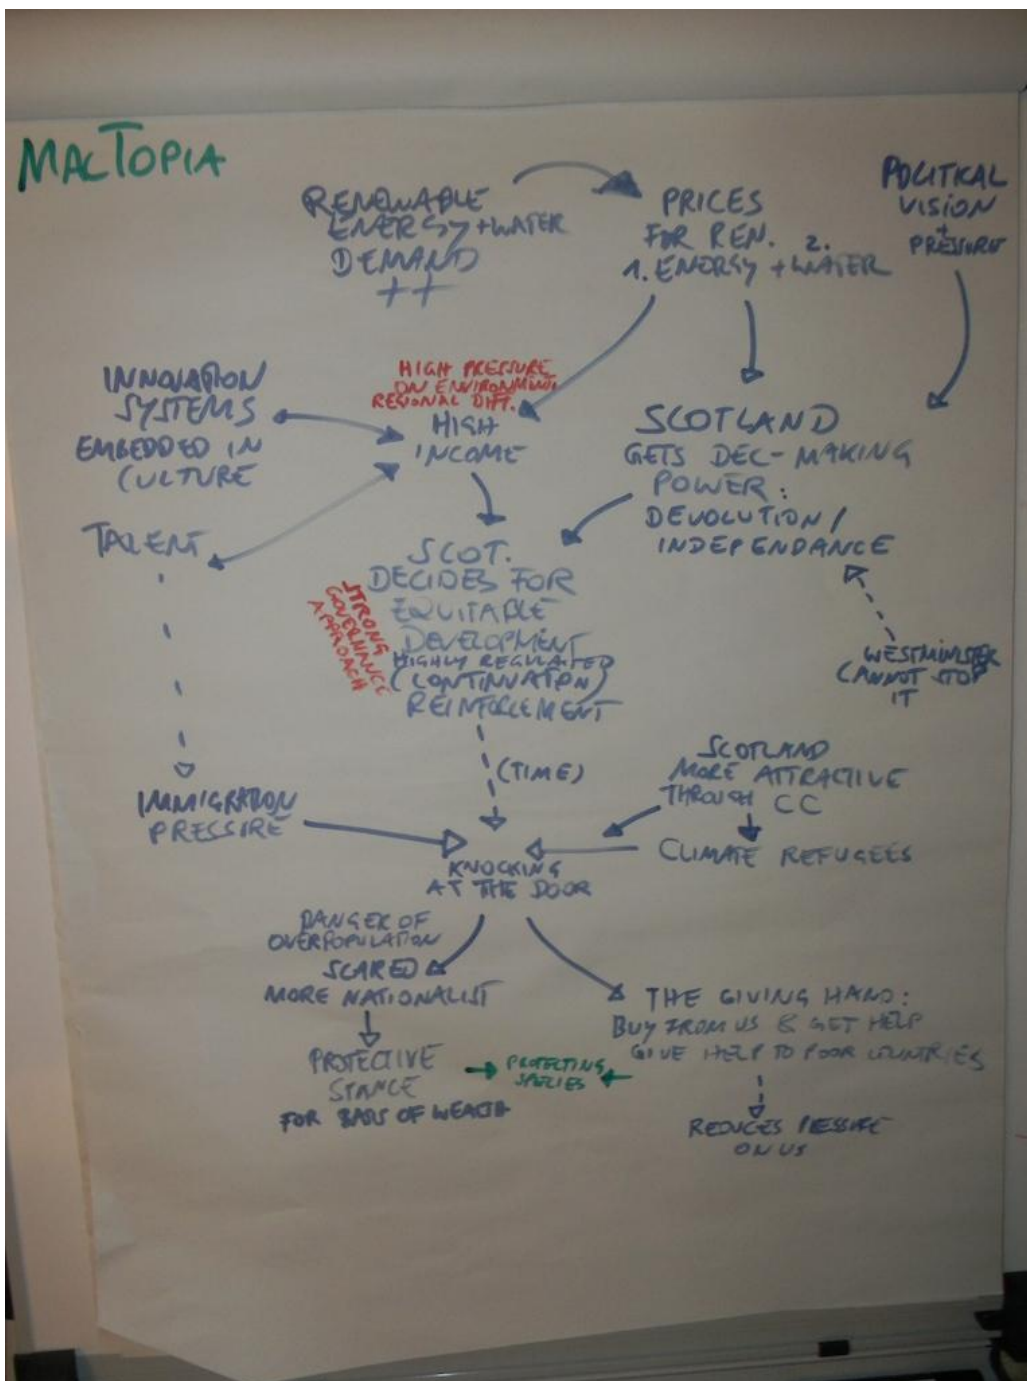 MACTOPIA
RENEWABLE
ENERGY + WATER
DEMAND
++
PRICES
FOR REN. 2.
1. ENERGY + WATER
POLITICAL
VISION
+
PRESSURE
INNOVATION
SYSTEMS
EMBEDDED IN
CULTURE
HIGH PRESSURE
ON ENVIRONMENT,
REGIONAL DIFF.
HIGH
INCOME
SCOTLAND
GETS DEC-MAKING
POWER:
DEVOLUTION /
INDEPENDANCE
TALENT
SCOT.
DECIDES FOR
EQUITABLE
DEVELOPMENT
HIGHLY REGULATED
(CONTINUATION)
REINFORCEMENT
STRONG
GOVERNANCE
APPROACH
WESTMINISTER
CANNOT STOP
IT
(TIME)
SCOTLAND
MORE ATTRACTIVE
THROUGH CC
IMMIGRATION
PRESSIRE
CLIMATE REFUGEES
KNOCKING
AT THE DOOR
DANGER OF
OVERPOPULATION
SCARED
MORE NATIONALIST
THE GIVING HAND:
BUY FROM US & GET HELP
GIVE HELP TO POOR COUNTRIES
PROTECTIVE
STANCE
FOR BASIS OF WEALTH
PROTECTING
SPECIES
REDUCES PRESSURE
ON US